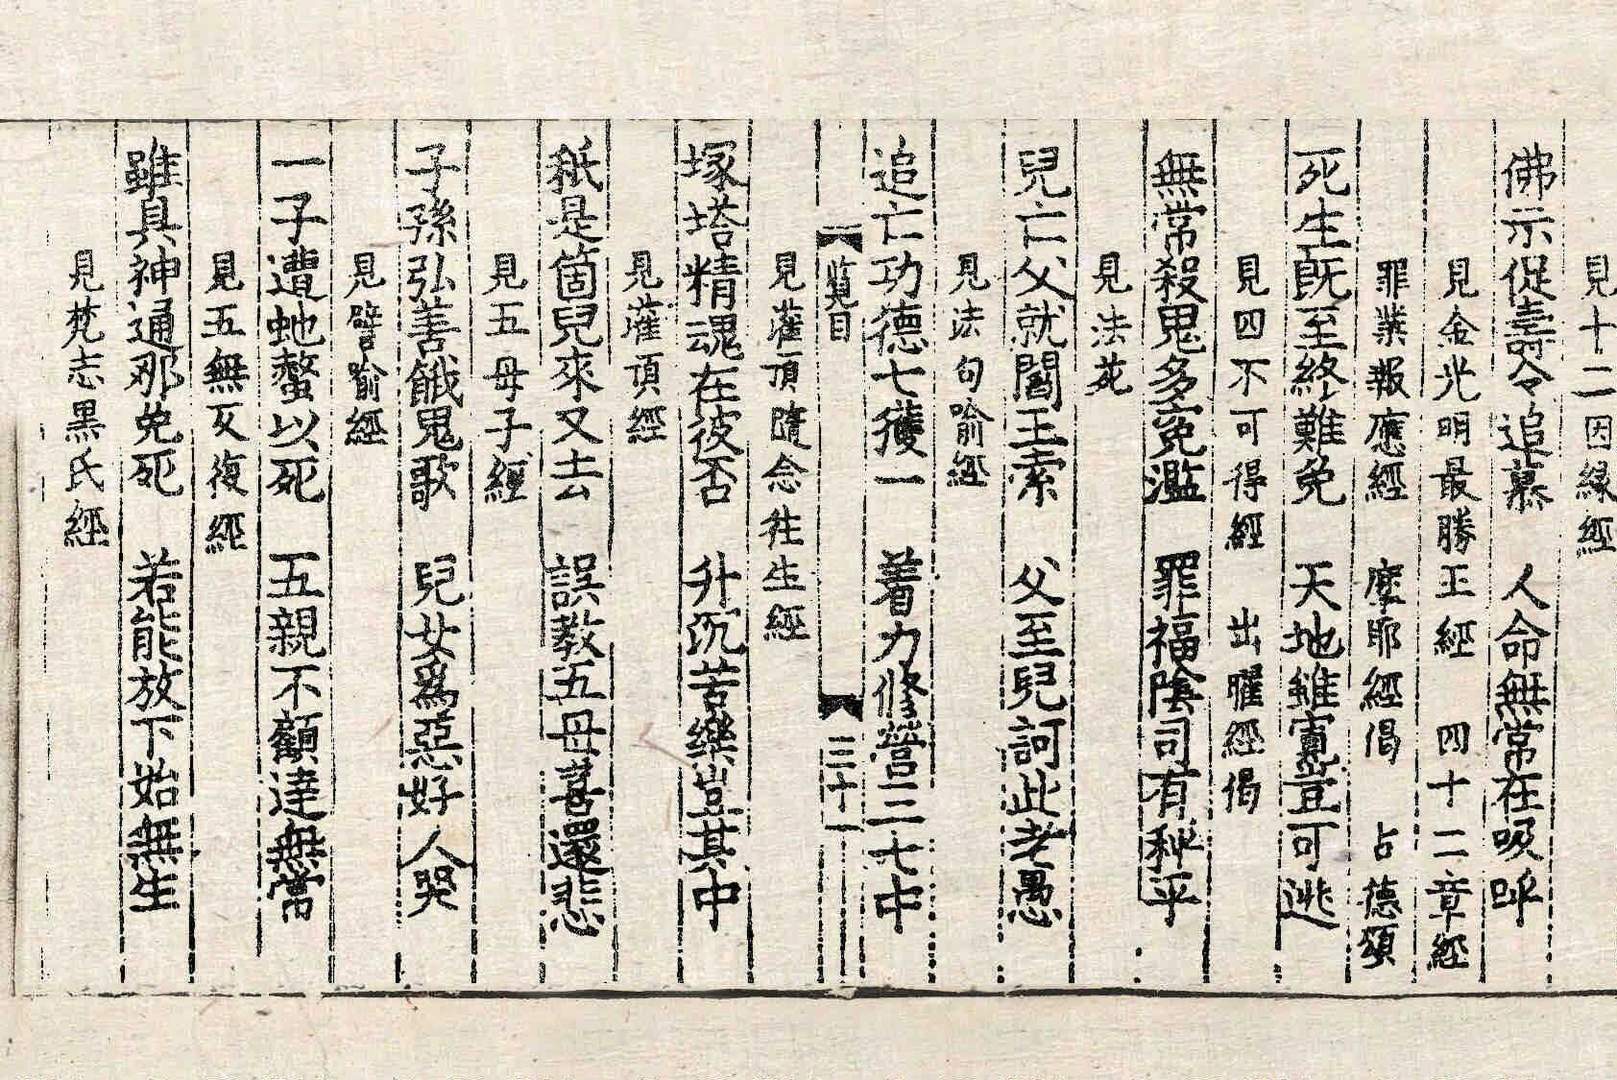 見十二因緣經
佛示促壽令追慕　人命無常在吸呼
見金光明最勝王經　四十二章經
罪業報應經　摩耶經偈　占德頌
死生旣至終難免　天地雖寬豈可逃
見四不可得經　出曜經偈
無常殺鬼多寃濫　罪福陰司有秤平
見法苑
兒亡父就閻王索　父至兒訶此老愚
見法句喻經
追亡功德七獲一　着力修營三七中
目
三十一
見灌頂隨念往生經
塚塔精魂在彼否　升沉苦樂豈其中
見灌頂經
秖是箇兒來又去　誤教五母喜還悲
見五母子經
子孫弘善餓鬼歌　兒女爲惡好人哭
見譬喻經
一子遭虵螫以死　五親不顧達無常
見五無反復經
雖具神通那免死　若能放下始無生
見梵志黑氏經